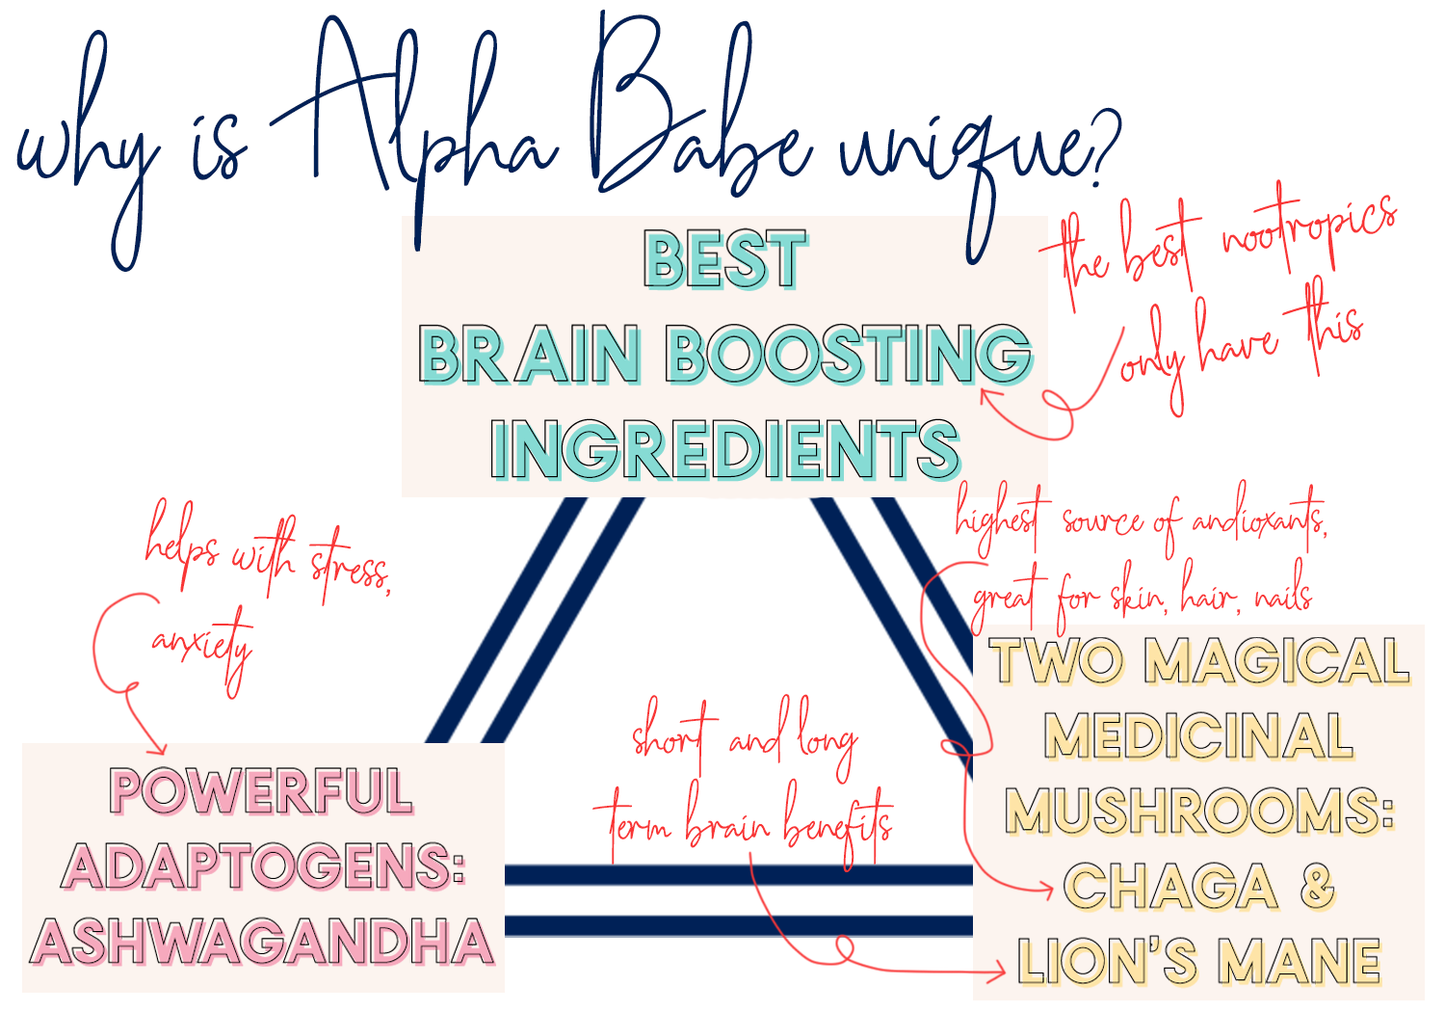 why is Alpha Babe unique?
BEST
BRAIN BOOSTING
INGREDIENTS
the best nootropics
only have this
helps with stress,
anxiety
POWERFUL
ADAPTOGENS:
ASHWAGANDHA
short and long
term brain benefits
highest source of andioxants,
great for skin, hair, nails
TWO MAGICAL
MEDICINAL
MUSHROOMS:
CHAGA &
LION'S MANE